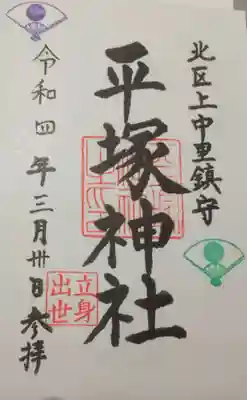 北区上中里鎮守
平塚神社
立身
出世
令和四年三月卅日参拝